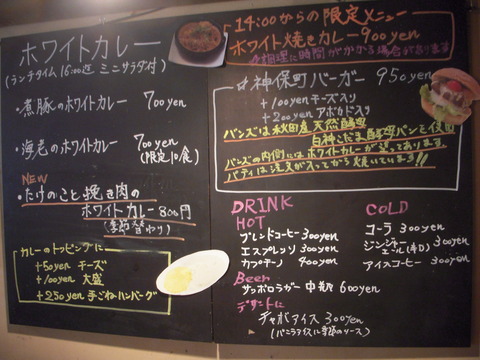 ホワイトカレー
(ランチタイム16:00迄 ミニサラダ付)
・煮豚のホワイトカレー 700yen
・海老のホワイトカレー 700yen
(限定10食)
NEW
・たけのこと挽き肉の
ホワイトカレー 800円
(季節替わり)
カレーのトッピングに
+50yen チーズ
+100yen 大盛
+250yen 手ごねハンバーグ
14:00からの限定メニュー
ホワイト焼きカレー 900yen
調理に時間がかかる場合があります
☆神保町バーガー 950yen
+100yen チーズ入り
+200yen アボカド入り
バンズは秋田産天然酵母
白神こだま酵母パンを使用
バンズの内側にはホワイトカレーが塗ってあります。
パティは注文が入ってから焼いています!!
DRINK
HOT
ブレンドコーヒー 300yen
エスプレッソ 300yen
カプチーノ 400yen
COLD
コーラ 300yen
ジンジャーエール(辛口) 300yen
アイスコーヒー 300yen
Beer
サッポロラガー 中瓶 600yen
デザートに
チャボアイス 300yen
(バニラアイスに季節のソース)